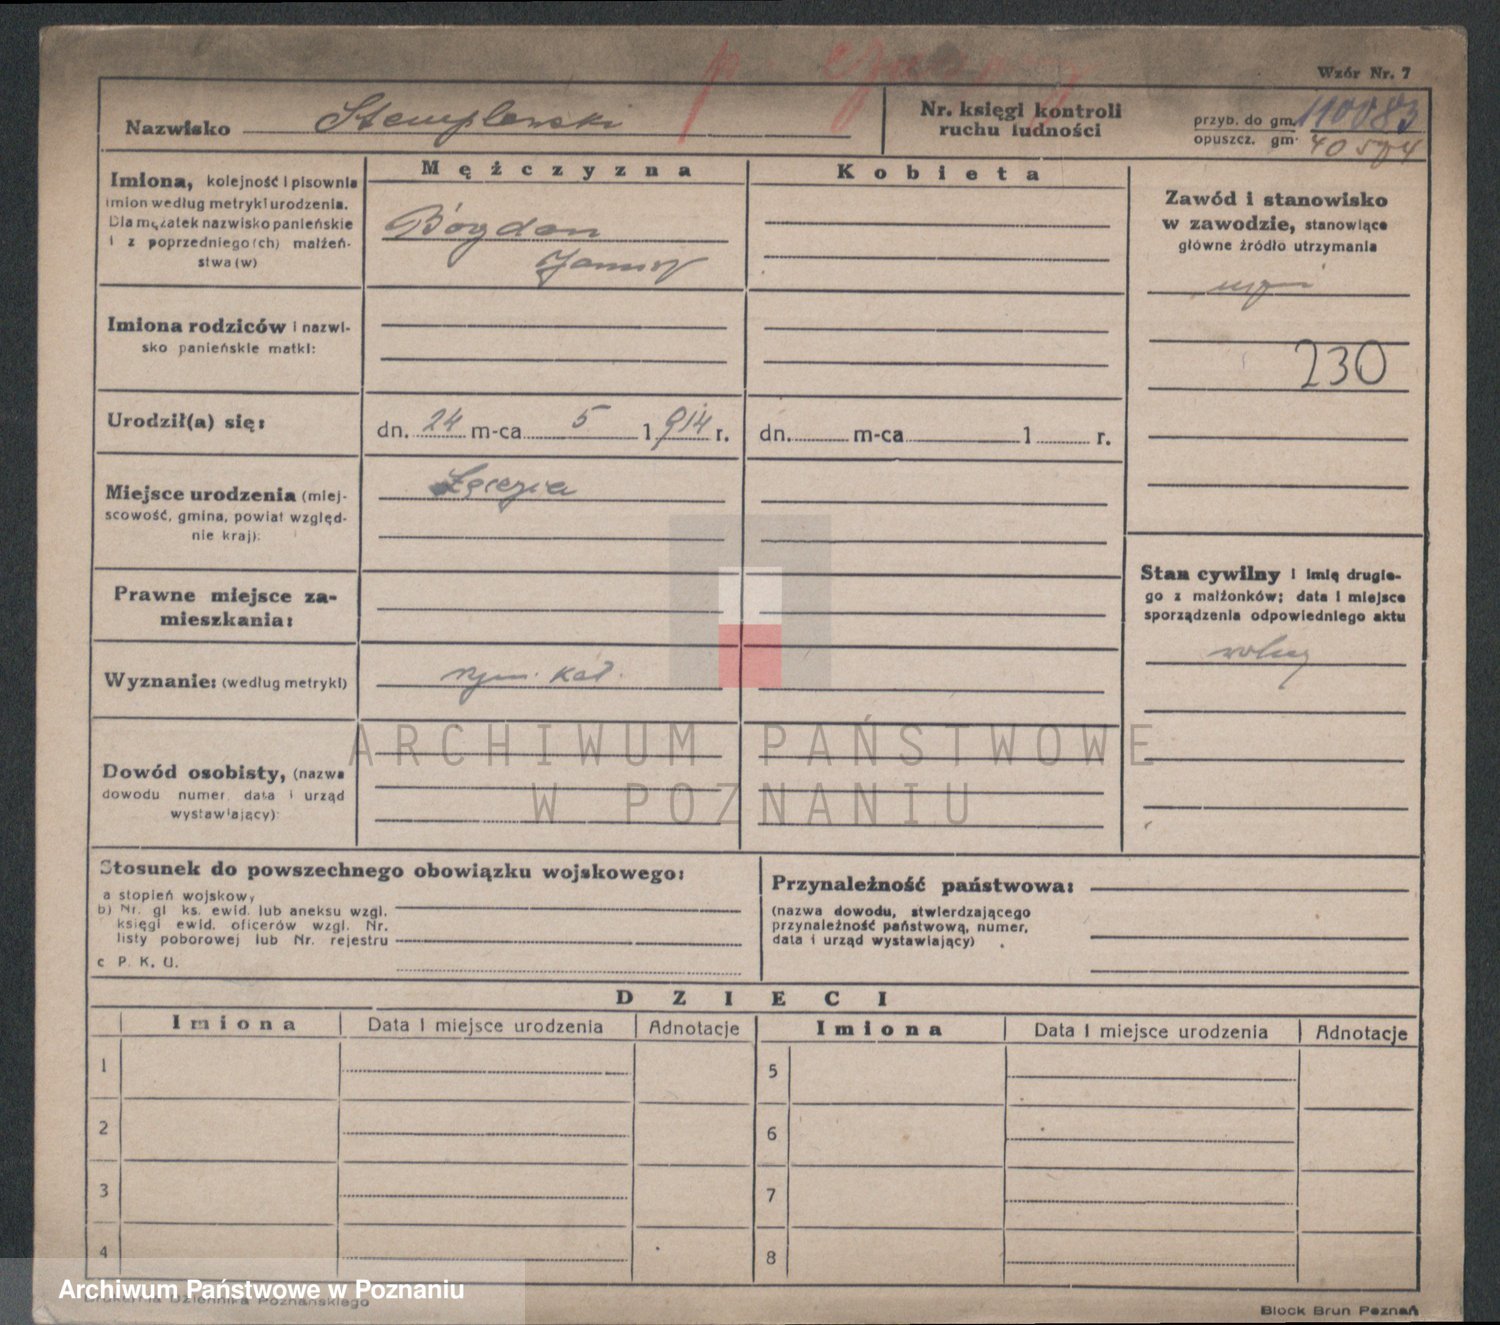 Wzór Nr. 7
Nazwisko Stemplewski
Nr. księgi kontroli
ruchu ludności
przyb. do gm. 110083
opuszcz. gm.
Mężczyzna
Kobieta
Imiona, kolejność i pisownia
imion według metryki urodzenia.
Dla mężatek nazwisko panieńskie
i z poprzedniego(ch) małżeń-
stwa(w)
Bogdan
Zawód i stanowisko
w zawodzie, stanowiące
główne źródło utrzymania
230
Imiona rodziców i nazwi-
sko panieńskie matki:
Urodził(a) się:
dn. 24 m-ca 5 1914 r.
dn. m-ca 1 r.
Miejsce urodzenia (miej-
scowość, gmina, powiat względ-
nie kraj):
Prawne miejsce za-
mieszkania:
Stan cywilny i imię drugie-
go z małżonków; data i miejsce
sporządzenia odpowiedniego aktu
wolny
Wyznanie: (według metryki)
rzym. kat.
ARCHIWUM PAŃSTWOWE
W POZNANIU
Dowód osobisty, (nazwa
dowodu numer, data i urząd
wystawiający):
Stosunek do powszechnego obowiązku wojskowego:
a stopień wojskowy
b) Nr. gl ks. ewid. lub aneksu wzgl.
księgi ewid. oficerów wzgl. Nr.
listy poborowej lub Nr. rejestru
c P. K. U.
Przynależność państwowa:
(nazwa dowodu, stwierdzającego
przynależność państwową, numer,
data i urząd wystawiający)
DZIECI
Imiona Data i miejsce urodzenia Adnotacje Imiona Data i miejsce urodzenia Adnotacje
1 5
2 6
3 7
4 8
Archiwum Państwowe w Poznaniu
Drukarnia Dziennika Poznańskiego
Block Brun Poznań